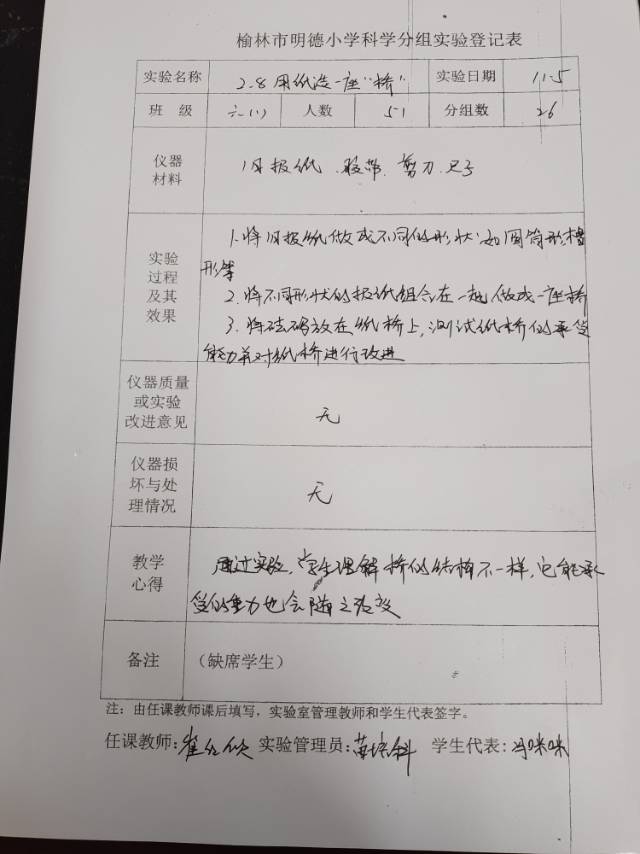 榆林市明德小学科学分组实验登记表
实验名称 2.8 用纸造一座“桥” 实验日期 11.5
班 级 六(1) 人数 51 分组数 26
仪器
材料
旧报纸、胶带、剪刀、尺子
实验
过程
及其
效果
1.将旧报纸做成不同的形状,如圆筒形槽
形等
2.将不同形状的报纸组合在一起做成一座桥
3.将砝码放在纸桥上,测试纸桥的承受
能力并对纸桥进行改进
仪器质量
或实验
改进意见
无
仪器损
坏与处
理情况
无
教学
心得
通过实验,学生理解桥的结构不一样,它能承
受的重力也会随之改变
备注 (缺席学生)
注:由任课教师课后填写,实验室管理教师和学生代表签字。
任课教师:崔 实验管理员: 学生代表:冯咪咪